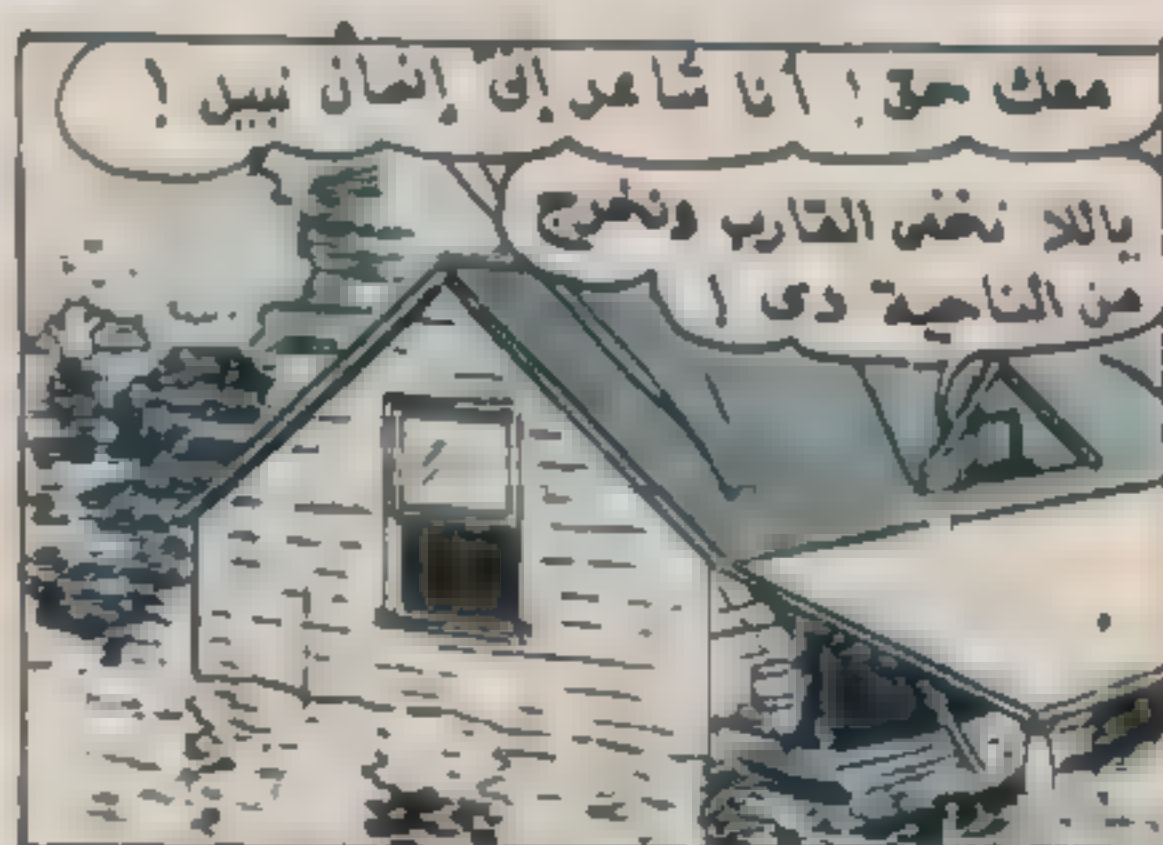 معك حق ! أنا شاعر إنى إنسان نبيل !
ياللا نخفى القارب ونخرج
من الناحية دى !